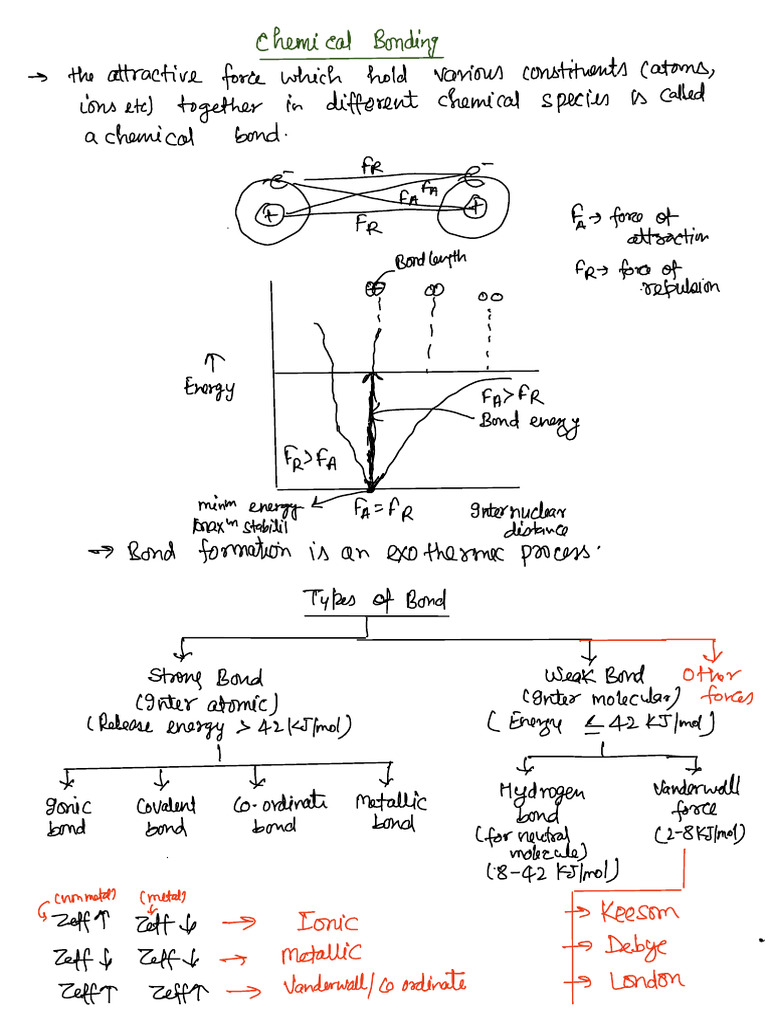 Chemical Bonding
→ the attractive force which hold various constituents (atoms,
ions etc) together in different chemical species is called
a chemical bond.
FR
e- e-
FA
FA
+ +
FR
FA → force of
attraction
FR → force of
repulsion
Bond length
↑
Energy
FA > FR
Bond energy
FR > FA
minm energy
maxm stabilil
FA = FR
Internuclear
distance
→ Bond formation is an exothermic process.
Types of Bond
Strong Bond
(Inter atomic)
(Release energy > 42 KJ/mol)
Weak Bond
(Inter molecular)
(Energy ≤ 42 KJ/mol)
Other
forces
Ionic
bond
Covalent
bond
Co-ordinate
bond
Metallic
bond
Hydrogen
bond
(for neutral
molecule)
(8-42 KJ/mol)
Vanderwall
force
(2-8 KJ/mol)
(non metal) (metal)
Zeff ↑ Zeff ↓ → Ionic
Zeff ↓ Zeff ↓ → Metallic
Zeff ↑ Zeff ↑ → Vanderwall/Co ordinate
→ Keesom
→ Debye
→ London